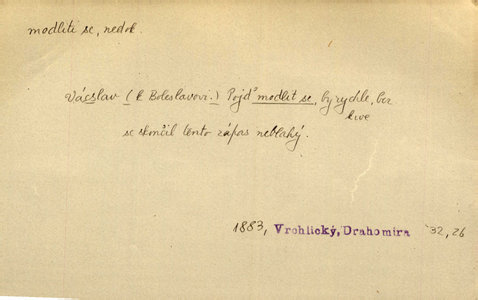 modliti se, nedok.
Václav (k Boleslavovi.) Pojď modlit se, by rychle, bez
krve
se skončil tento zápas neblahý.
1883, Vrchlický, Drahomíra 32, 26